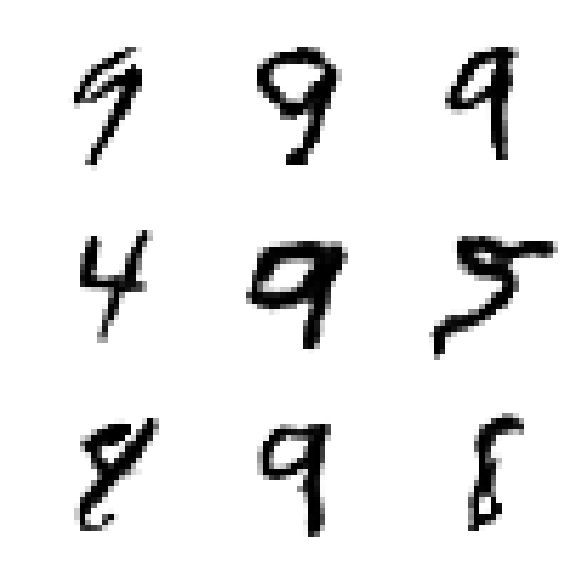 9 9 9
4 9 5
8 9 8